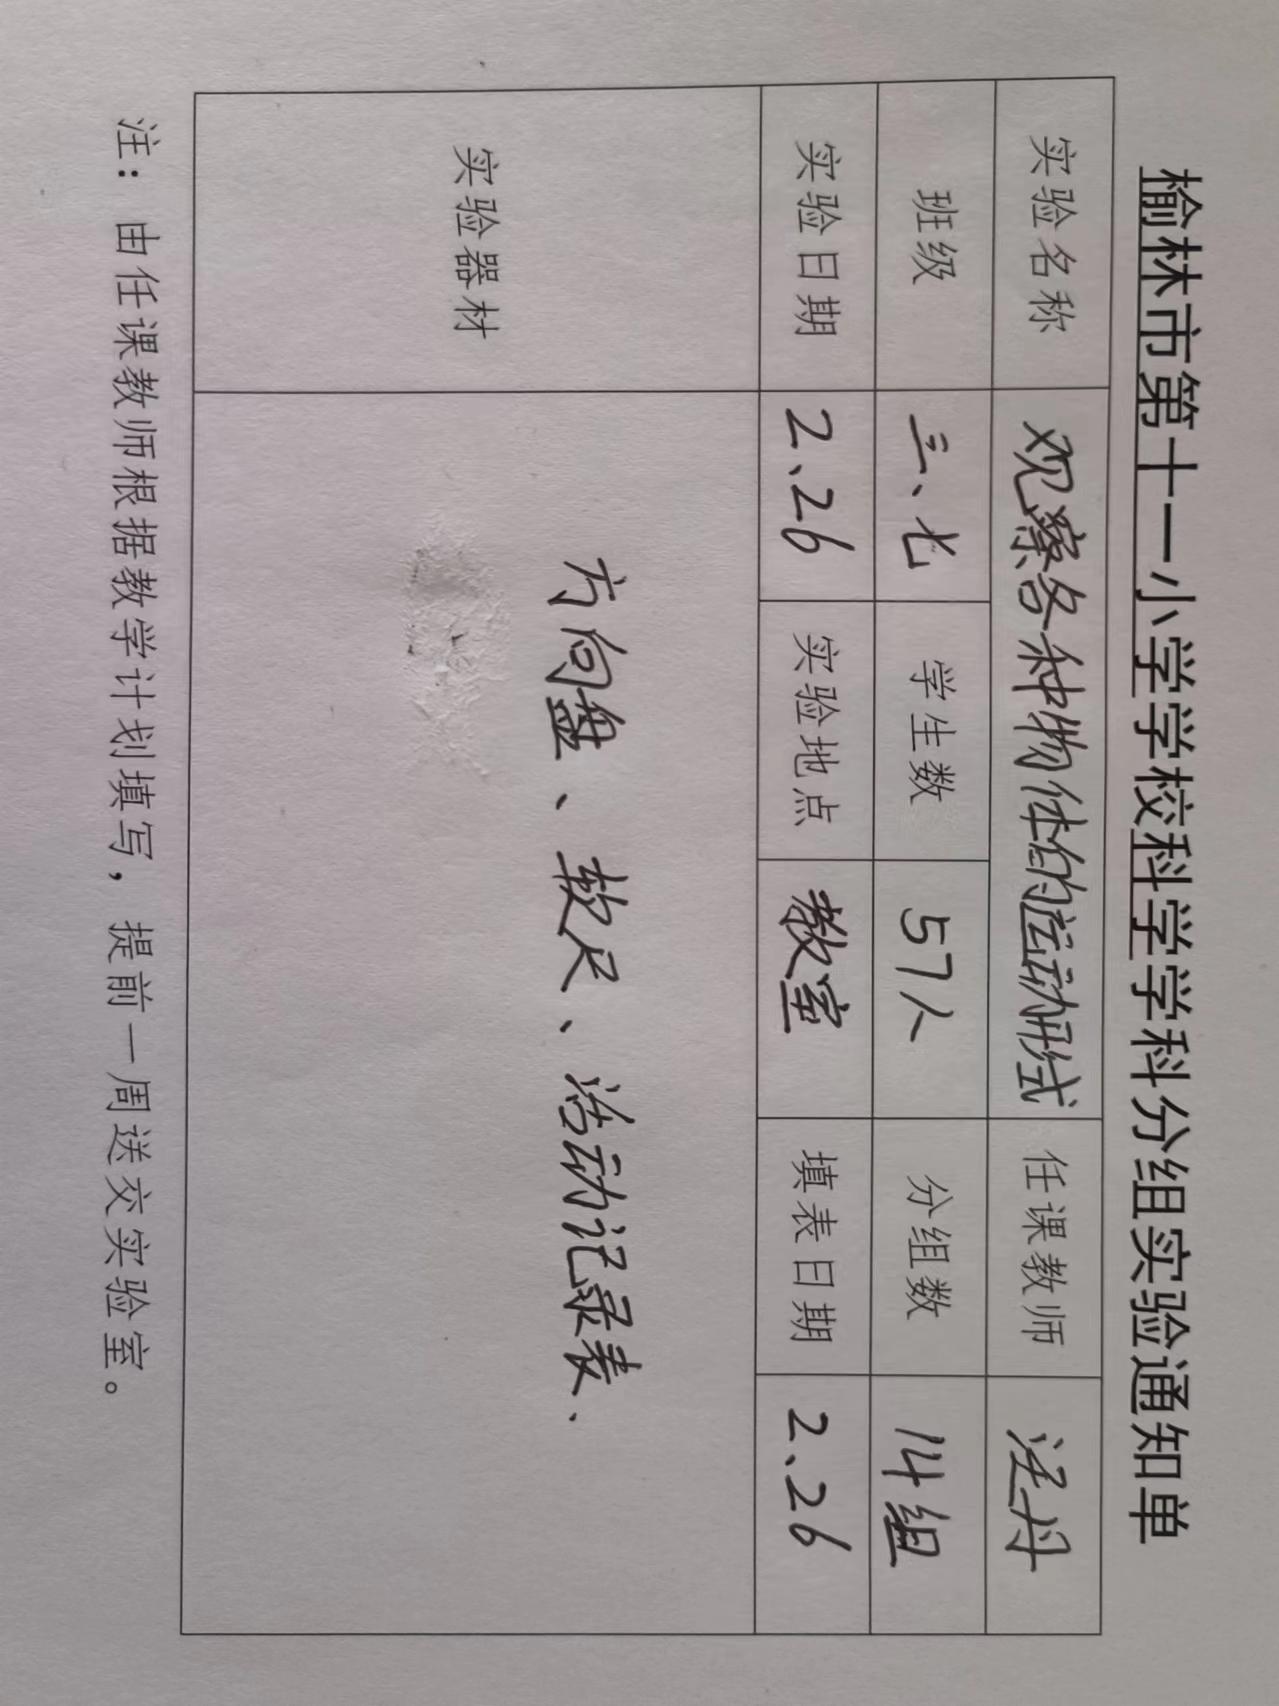 榆林市第十一小学学校科学学科分组实验通知单
实验名称 观察各种物体的运动形式 任课教师 汪丹
班级 三、七 学生数 57人 分组数 14组
实验日期 2、26 实验地点 教室 填表日期 2、26
实验器材 方向盘、软尺、活动记录表、
注：由任课教师根据教学计划填写，提前一周送交实验室。